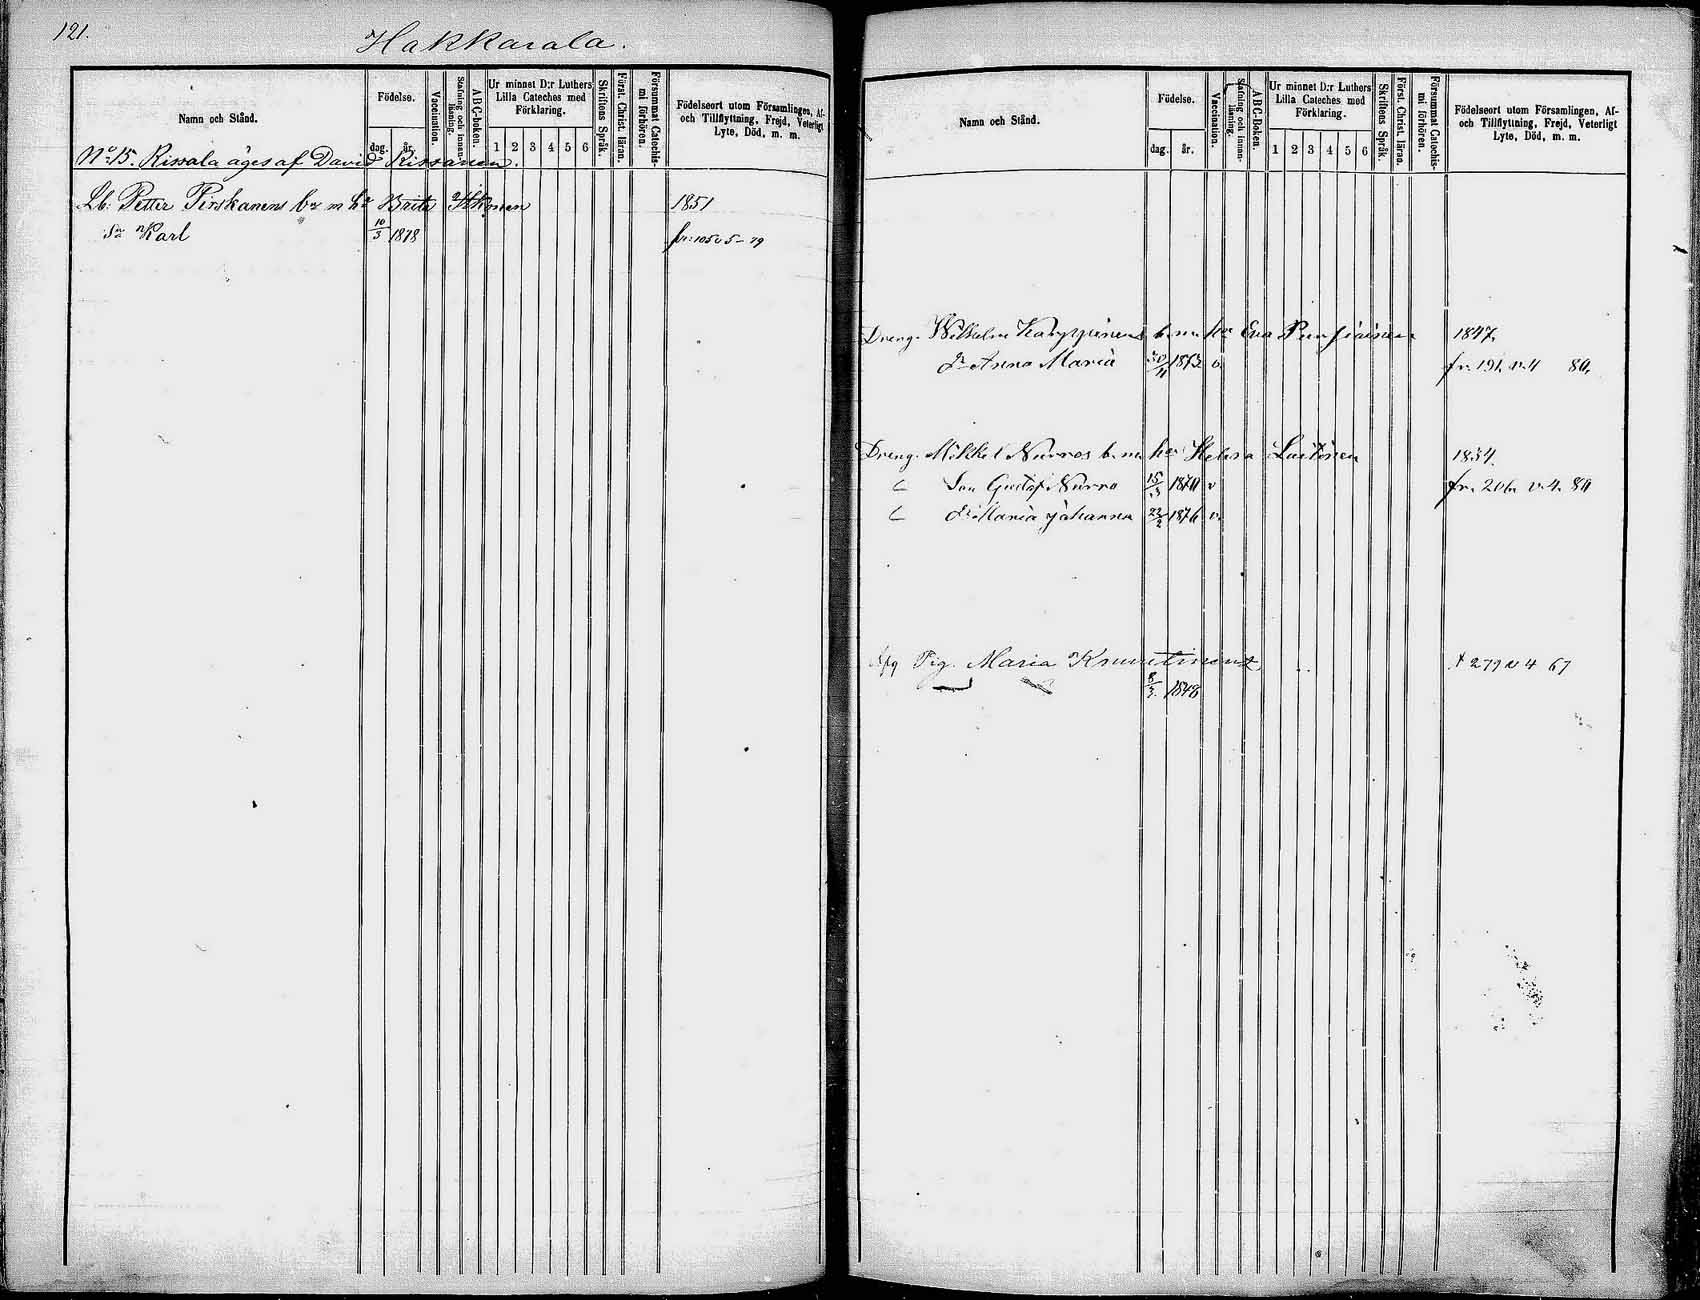 121.
Hakkarala.
Namn och Stånd.
Födelse.
dag.
år.
Vaccination.
Stafning och innan-läsning.
ABC-Boken.
Ur minnet D:r Luthers
Lilla Cateches med
Förklaring.
1 2 3 4 5 6
Skriftens Språk.
Först. Christ. läran.
Försummat Catechis-
mi förhören.
Födelseort utom Församlingen, Af-
och Tillflyttning, Frejd, Veterligt
Lyte, Död, m. m.
No 15. Rissala äges af David Rissanen.
Lb: Petter Pirskanens br m hr Brita Itkonen 1851
Karl 10/3 1878 fr: 105 v 5-79
Namn och Stånd.
Födelse.
dag.
år.
Vaccination.
Stafning och innan-
läsning.
ABC-Boken.
Ur minnet D:r Luthers
Lilla Cateches med
Förklaring.
1 2 3 4 5 6
Skriftens Språk.
Först. Christ. läran.
Försummat Catechis-
mi förhören.
Födelseort utom Församlingen, Af-
och Tillflyttning, Frejd, Veterligt
Lyte, Död, m. m.
Dreng. Wilhelm Karppinens b. m. hr Eva 1847.
Dr Anna Maria 30/11 1873 v. fr. 191. v. 4 80.
Dreng. Mikkel Nurros b. m. hr Helena 1834.
Son Gustaf Nurro 15/3 1870 v fr. 206. v. 4. 80
Dr Maria Johanna 22/2 1876 v.
Pig. Maria
8/3. 1848 279 v 4 67